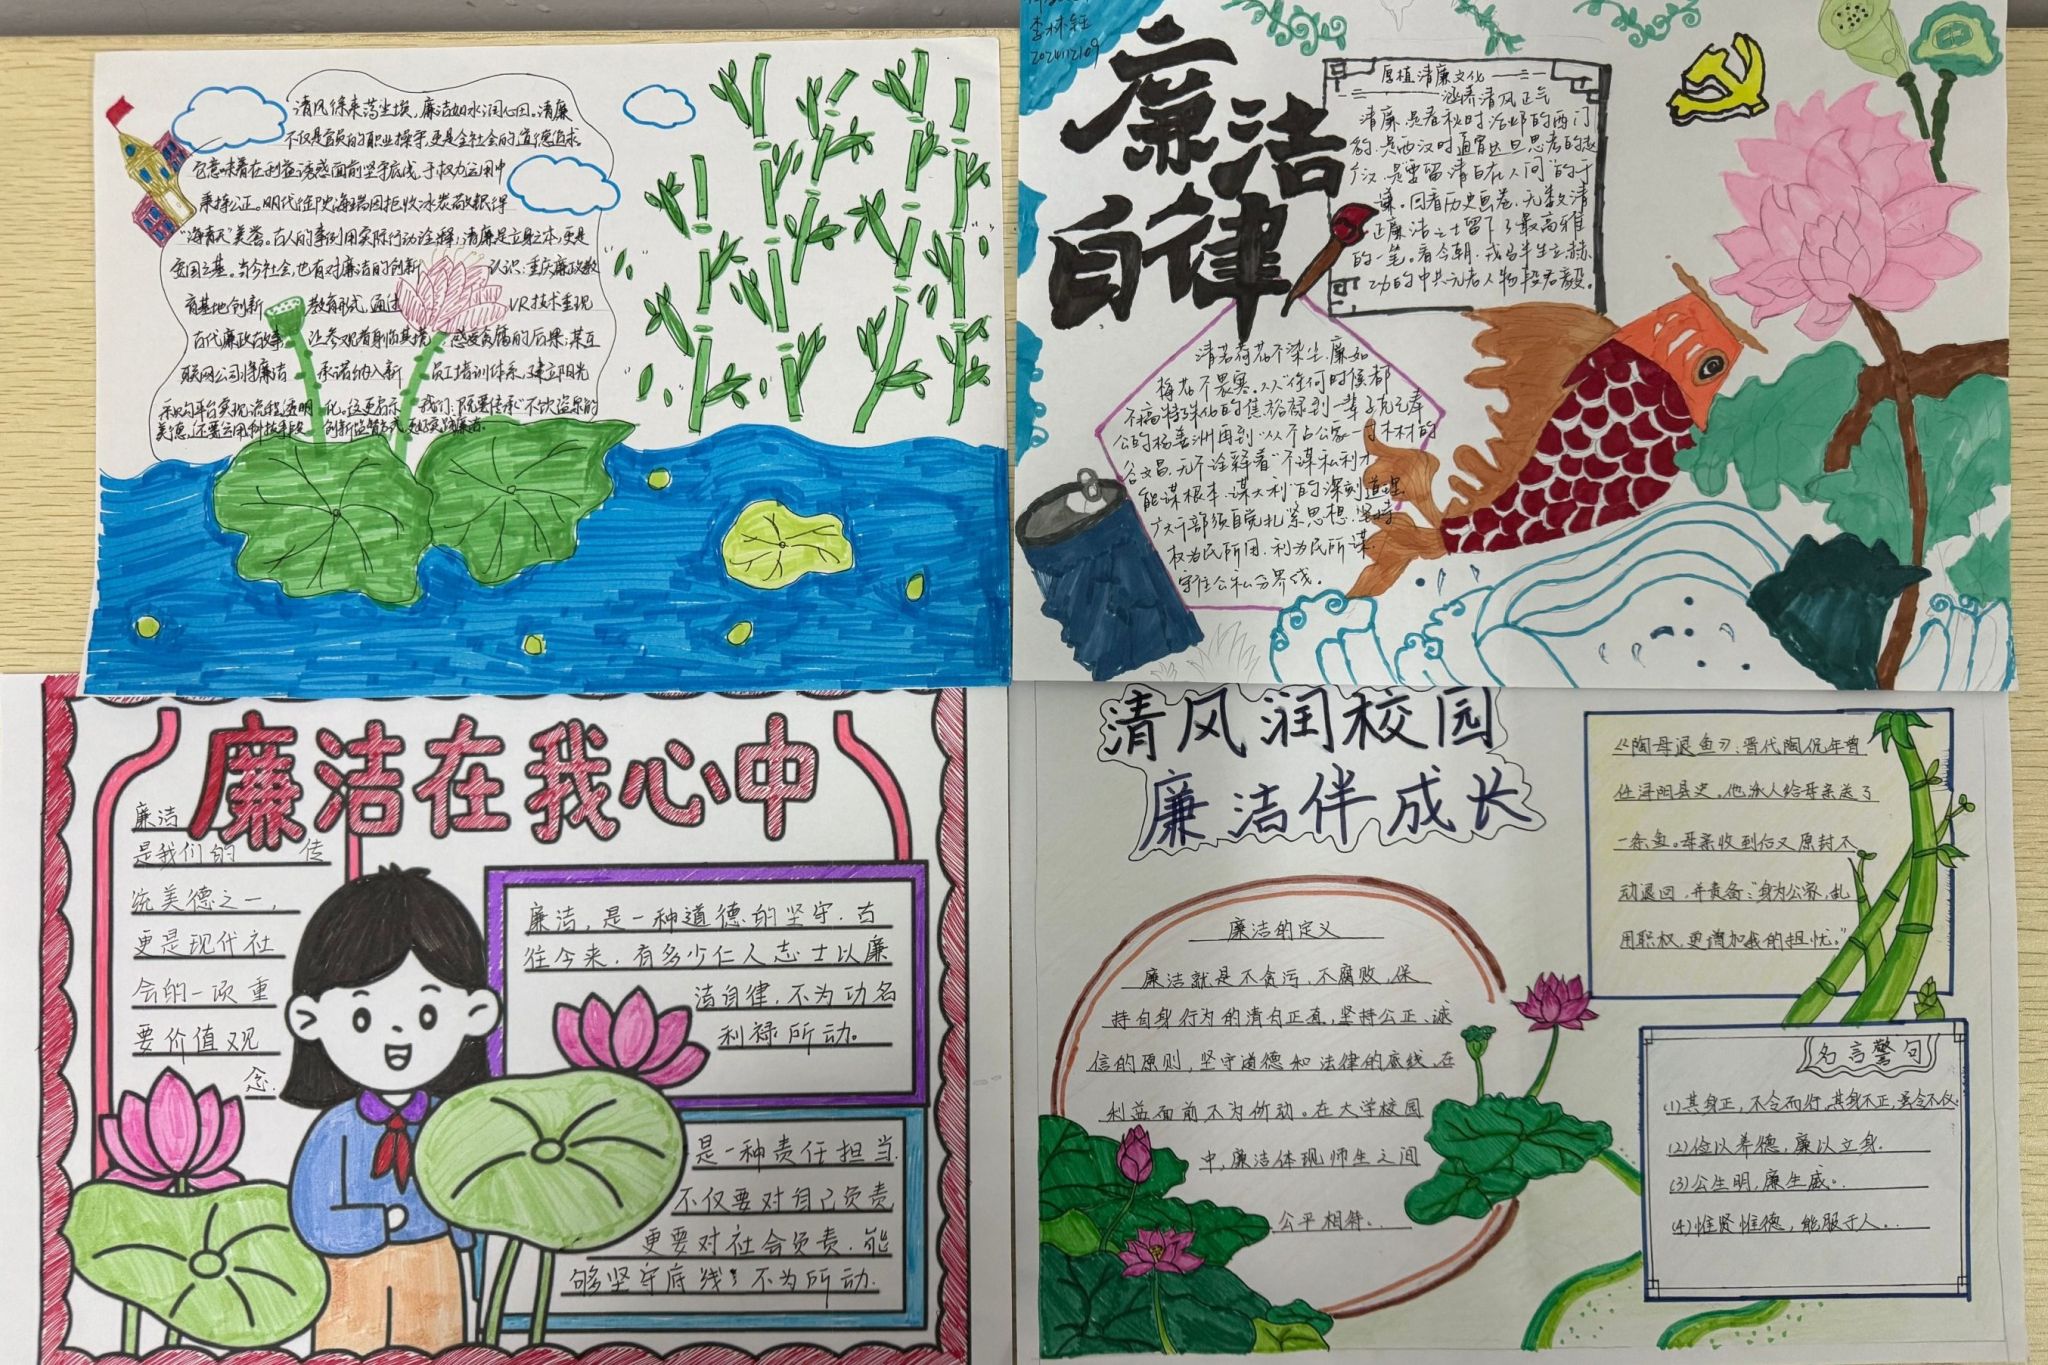 清风徐来荡尘埃，廉洁如水润心田，清廉
不仅是官员的职业操守，更是全社会的道德追求。
它意味着在利益诱惑面前坚守底线，于权力运用中
秉持公正。明代
海瑞因拒收冰炭敬赢得
“海青天”美誉。古人的事例用实际行动诠释，清廉是立身之本，更是
安国之基。当今社会，也有对廉洁的创新 认识：重庆廉政教
育基地创新 教育形式，通过 VR技术重现
古代廉政故事 让参观者身临其境 感受贪腐的后果；某互
联网公司将廉洁 承诺纳入新 员工培训体系，建立阳光
采购平台实现流程透明 化。这更启示 我们：既要传承“不饮盗泉”的
美德，还要运用科技手段 创新监管方式
李林钰
2024112109
廉洁
自律
厚植清廉文化
涵养清风正气
清廉，是春秋时治邺的西门
豹，是西汉时通宵达旦思考的赵
广汉，是要留清白在人间的于
谦。回看历史画卷，无数清
正廉洁之士留下了最高雅
的一笔。看今朝，戎马半生立赫
功的中共元老人物段君毅。
清若荷花不染尘，廉如
梅花不畏寒。从“任何时候都
不搞特殊化”的焦裕禄到一辈子克己奉
公的杨善洲再到“从不占公家一寸木材”的
谷文昌，无不诠释着“不谋私利才
能谋根本、谋大利”的深刻道理
广大干部须自觉扎紧思想，坚持
权为民所用，利为民所谋，
守住公私分界线。
廉洁在我心中
廉洁
是我们的 传
统美德之一，
更是现代社
会的一项重
要价值观
念.
廉洁，是一种道德的坚守. 古
往今来，有多少仁人志士以廉
洁自律，不为功名
利禄所动。
是一种责任担当.
不仅要对自己负责
更要对社会负责，能
够坚守底线，不为所动.
清风润校园
廉洁伴成长
廉洁的定义
廉洁就是不贪污，不腐败，保
持自身行为的清白正直，坚持公正、诚
信的原则，坚守道德和法律的底线，在
利益面前不为所动。在大学校园
中，廉洁体现师生之间
公平相待..
《陶母退鱼》：晋代陶侃年曾
任浔阳县吏。他派人给母亲送了
一条鱼。母亲收到后又原封不
动退回，并责备：“身为公家，乱
用职权，更增加我的担忧。”
名言警句
(1)其身正，不令而行，其身不正，虽令不从。
(2)俭以养德，廉以立身.
(3)公生明，廉生威。.
(4)惟贤惟德，能服于人..